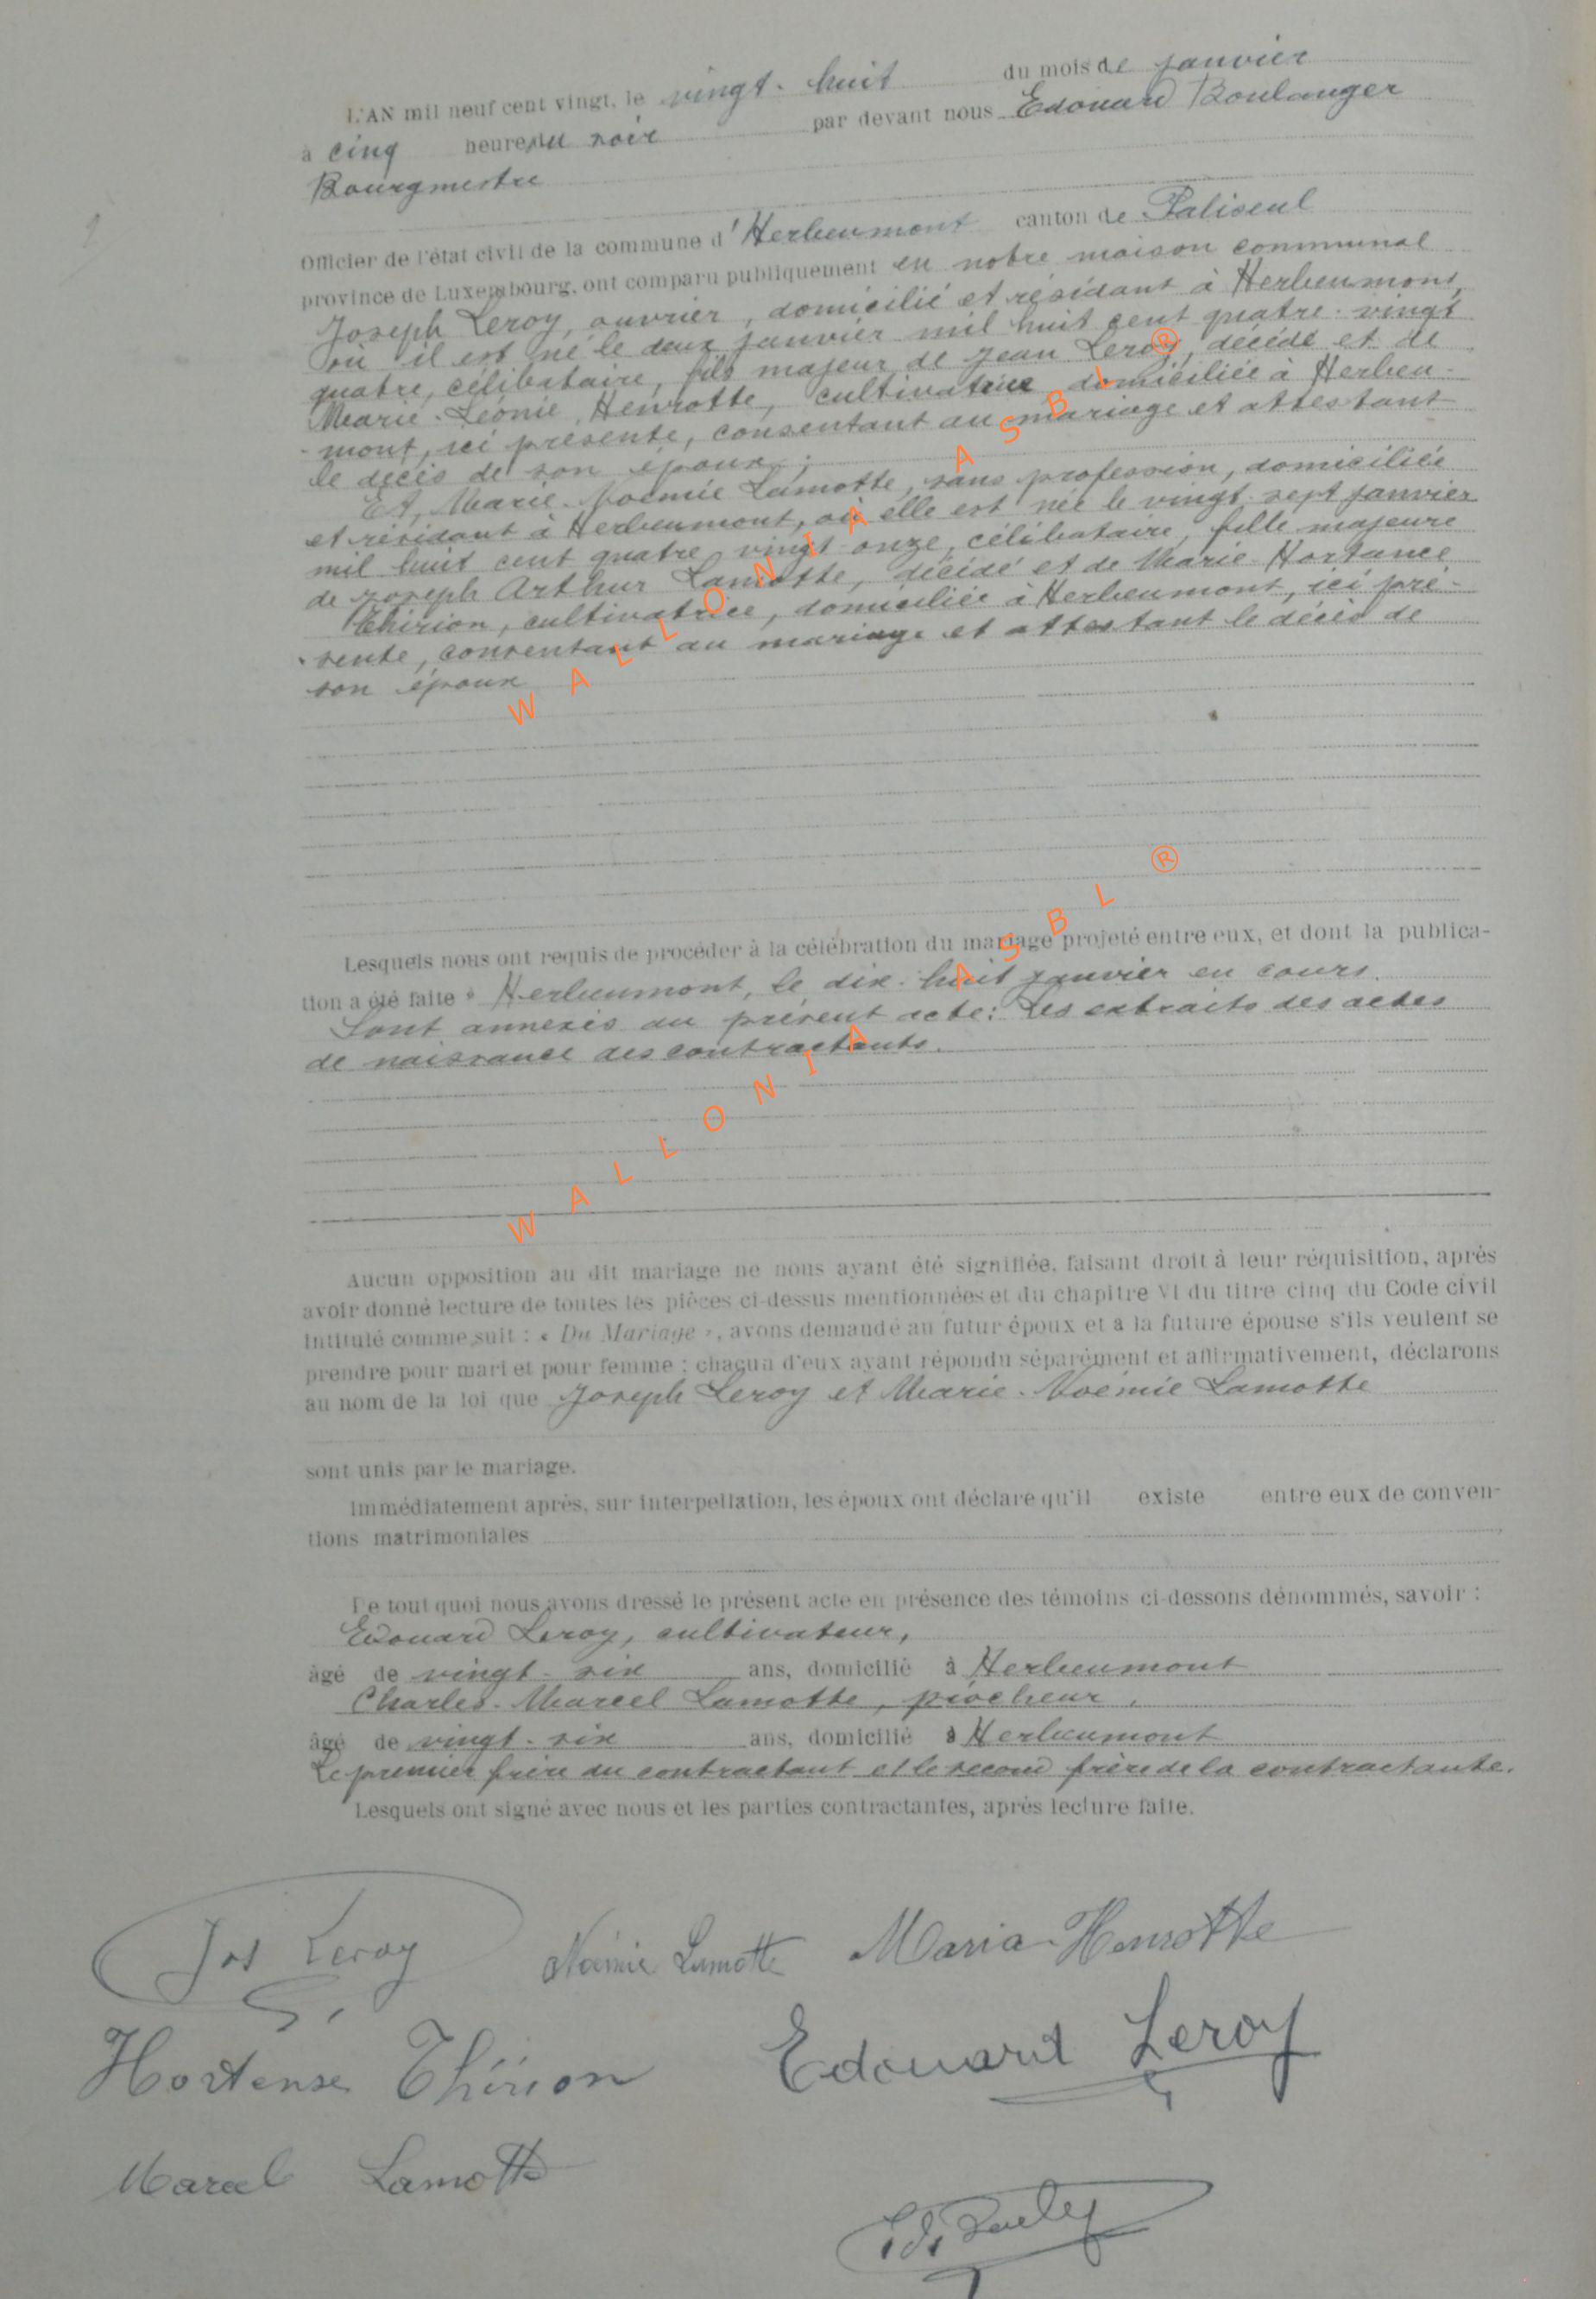 L'AN mil neuf cent vingt, le vingt-huit du mois de janvier
à cinq heures du soir par devant nous Edouard Boulanger
Bourgmestre
Officier de l'état civil de la commune d'Herbeumont canton de Paliseul
province de Luxembourg, ont comparu publiquement en notre maison communal
Joseph Leroy, ouvrier, domicilié et résidant à Herbeumont,
où il est né le deux janvier mil huit cent quatre-vingt
quatre, célibataire, fils majeur de Jean Leroy, décédé et de
Marie-Léonie Henrotte, cultivatrice domiciliée à Herbeu-
-mont, ici présente, consentant au mariage et attestant
le décès de son époux;
Et, Marie-Noémie Lamotte, sans profession, domiciliée
et résidant à Herbeumont, où elle est née le vingt-sept janvier
mil huit cent quatre vingt-onze, célibataire, fille majeure
de Joseph Arthur Lamotte, décédé et de Marie-Hortance
Thirion, cultivatrice, domiciliée à Herbeumont, ici pré-
-sente, consentant au mariage et attestant le décès de
son époux
Lesquels nous ont requis de procéder à la célébration du mariage projeté entre eux, et dont la publica-
tion a été faite à Herbeumont, le dix-huit janvier en cours.
Sont annexés au présent acte: Les extraits des actes
de naissance des contractants.
Aucun opposition au dit mariage ne nous ayant été signifiée, faisant droit à leur réquisition, après
avoir donné lecture de toutes les pièces ci-dessus mentionnées et du chapitre VI du titre cinq du Code civil
intitulé comme suit : « Du Mariage », avons demandé au futur époux et à la future épouse s'ils veulent se
prendre pour mari et pour femme ; chacun d'eux ayant répondu séparément et affirmativement, déclarons
au nom de la loi que Joseph Leroy et Marie-Noémie Lamotte
sont unis par le mariage.
Immédiatement après, sur interpellation, les époux ont déclaré qu'il existe entre eux de conven-
tions matrimoniales
De tout quoi nous avons dressé le présent acte en présence des témoins ci-dessous dénommés, savoir :
Edouard Leroy, cultivateur,
âgé de vingt-six ans, domicilié à Herbeumont
Charles-Marcel Lamotte, piocheur,
âgé de vingt-six ans, domicilié à Herbeumont
Le premier frère du contractant et le second frère de la contractante.
Lesquels ont signé avec nous et les parties contractantes, après lecture faite.
Jos Leroy Noémie Lamotte Maria Henrotte
Hortense Thirion Edouard Leroy
Marcel Lamotte
WALLONIA ASBL ®
WALLONIA ASBL ®